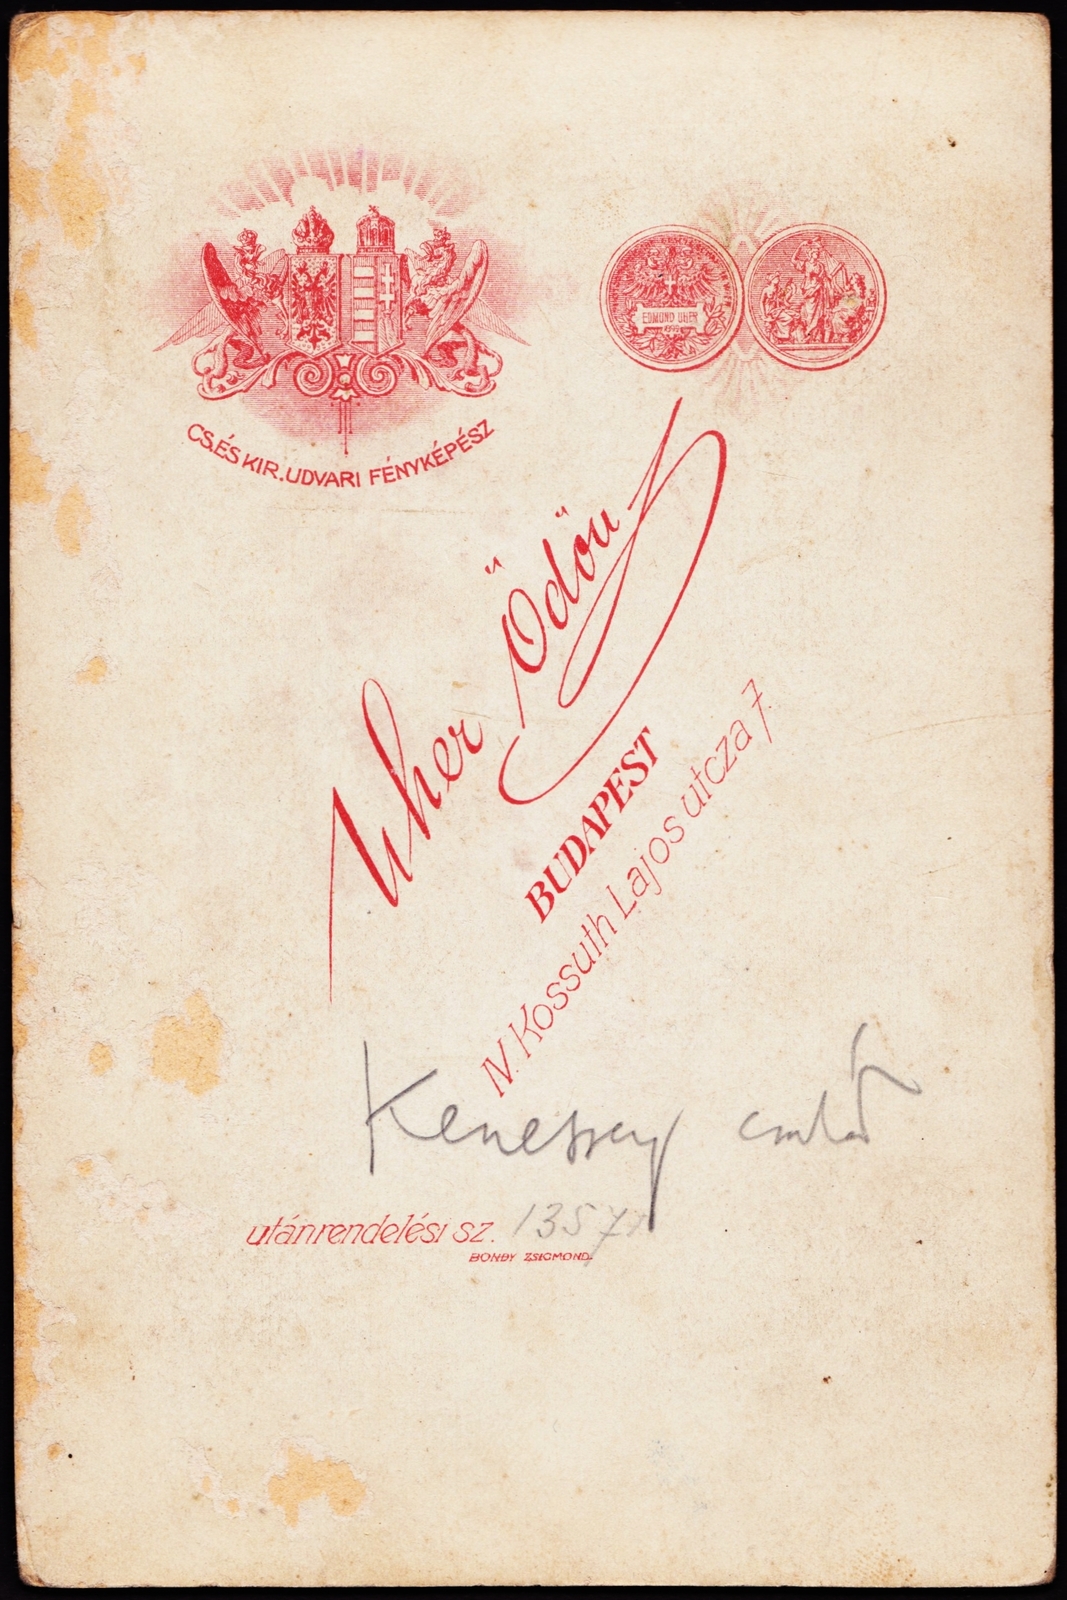 EDMUND UHER
CS. ÉS KIR. UDVARI FÉNYKÉPÉSZ
Uher Ödön
BUDAPEST
IV. Kossuth Lajos utcza 7
Kenessey
utánrendelési sz. 1357
BONDY ZSIGMOND.